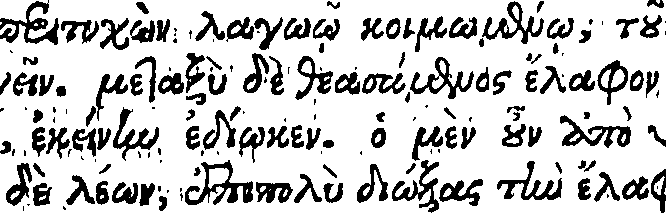 περιτυχὼν λαγωῷ κοιμωμένῳ, τοῦ
μεταξὺ δὲ θεασάμενος ἔλαφον
ἐκείνην ἐδίωκεν. ὁ μὲν οὖν ἀπὸ
δὲ λέων, ἐπιπολὺ διώξας τὴν ἔλαφ